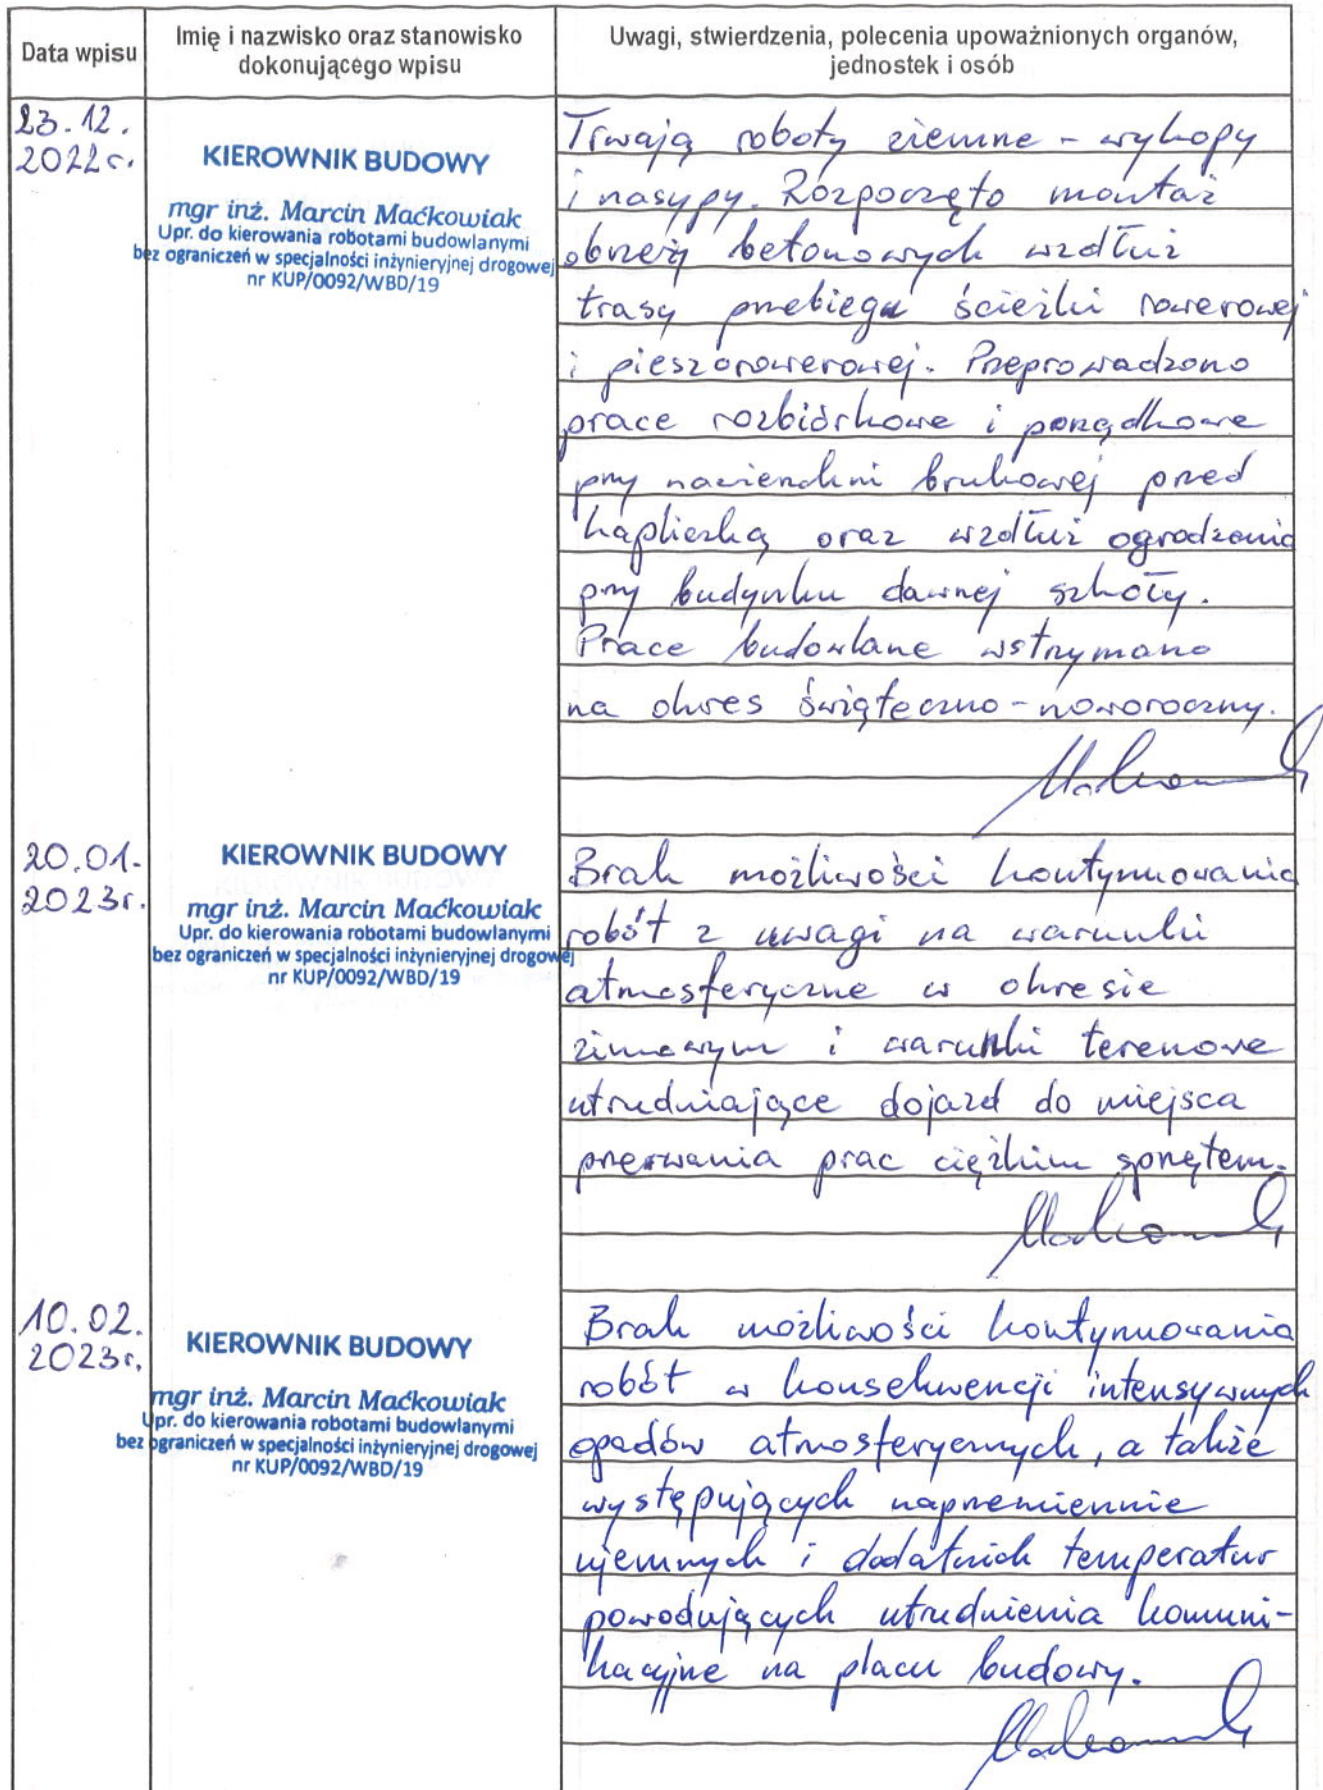 Data wpisu
Imię i nazwisko oraz stanowisko
dokonującego wpisu
Uwagi, stwierdzenia, polecenia upoważnionych organów,
jednostek i osób
23.12.
2022r.
KIEROWNIK BUDOWY
mgr inż. Marcin Maćkowiak
Upr. do kierowania robotami budowlanymi
bez ograniczeń w specjalności inżynieryjnej drogowej
nr KUP/0092/WBD/19
Trwają roboty ziemne - wykopy
i nasypy. Rozpoczęto montaż
obrzeży betonowych wzdłuż
trasy przebiegu ścieżki rowerowej
i pieszorowerowej. Przeprowadzono
prace rozbiórkowe i porządkowe
przy nawierzchni brukowej przed
kapliczką oraz wzdłuż ogrodzenia
przy budynku dawnej szkoły.
Prace budowlane wstrzymano
na okres świąteczno-noworoczny.
20.01.
2023r.
KIEROWNIK BUDOWY
mgr inż. Marcin Maćkowiak
Upr. do kierowania robotami budowlanymi
bez ograniczeń w specjalności inżynieryjnej drogowej
nr KUP/0092/WBD/19
Brak możliwości kontynuowania
robót z uwagi na warunki
atmosferyczne w okresie
zimowym i warunki terenowe
utrudniające dojazd do miejsca
przerwania prac ciężkim sprzętem.
10.02.
2023r.
KIEROWNIK BUDOWY
mgr inż. Marcin Maćkowiak
Upr. do kierowania robotami budowlanymi
bez ograniczeń w specjalności inżynieryjnej drogowej
nr KUP/0092/WBD/19
Brak możliwości kontynuowania
robót w konsekwencji intensywnych
opadów atmosferycznych, a także
występujących naprzemiennie
ujemnych i dodatnich temperatur
powodujących utrudnienia komuni-
kacyjne na placu budowy.